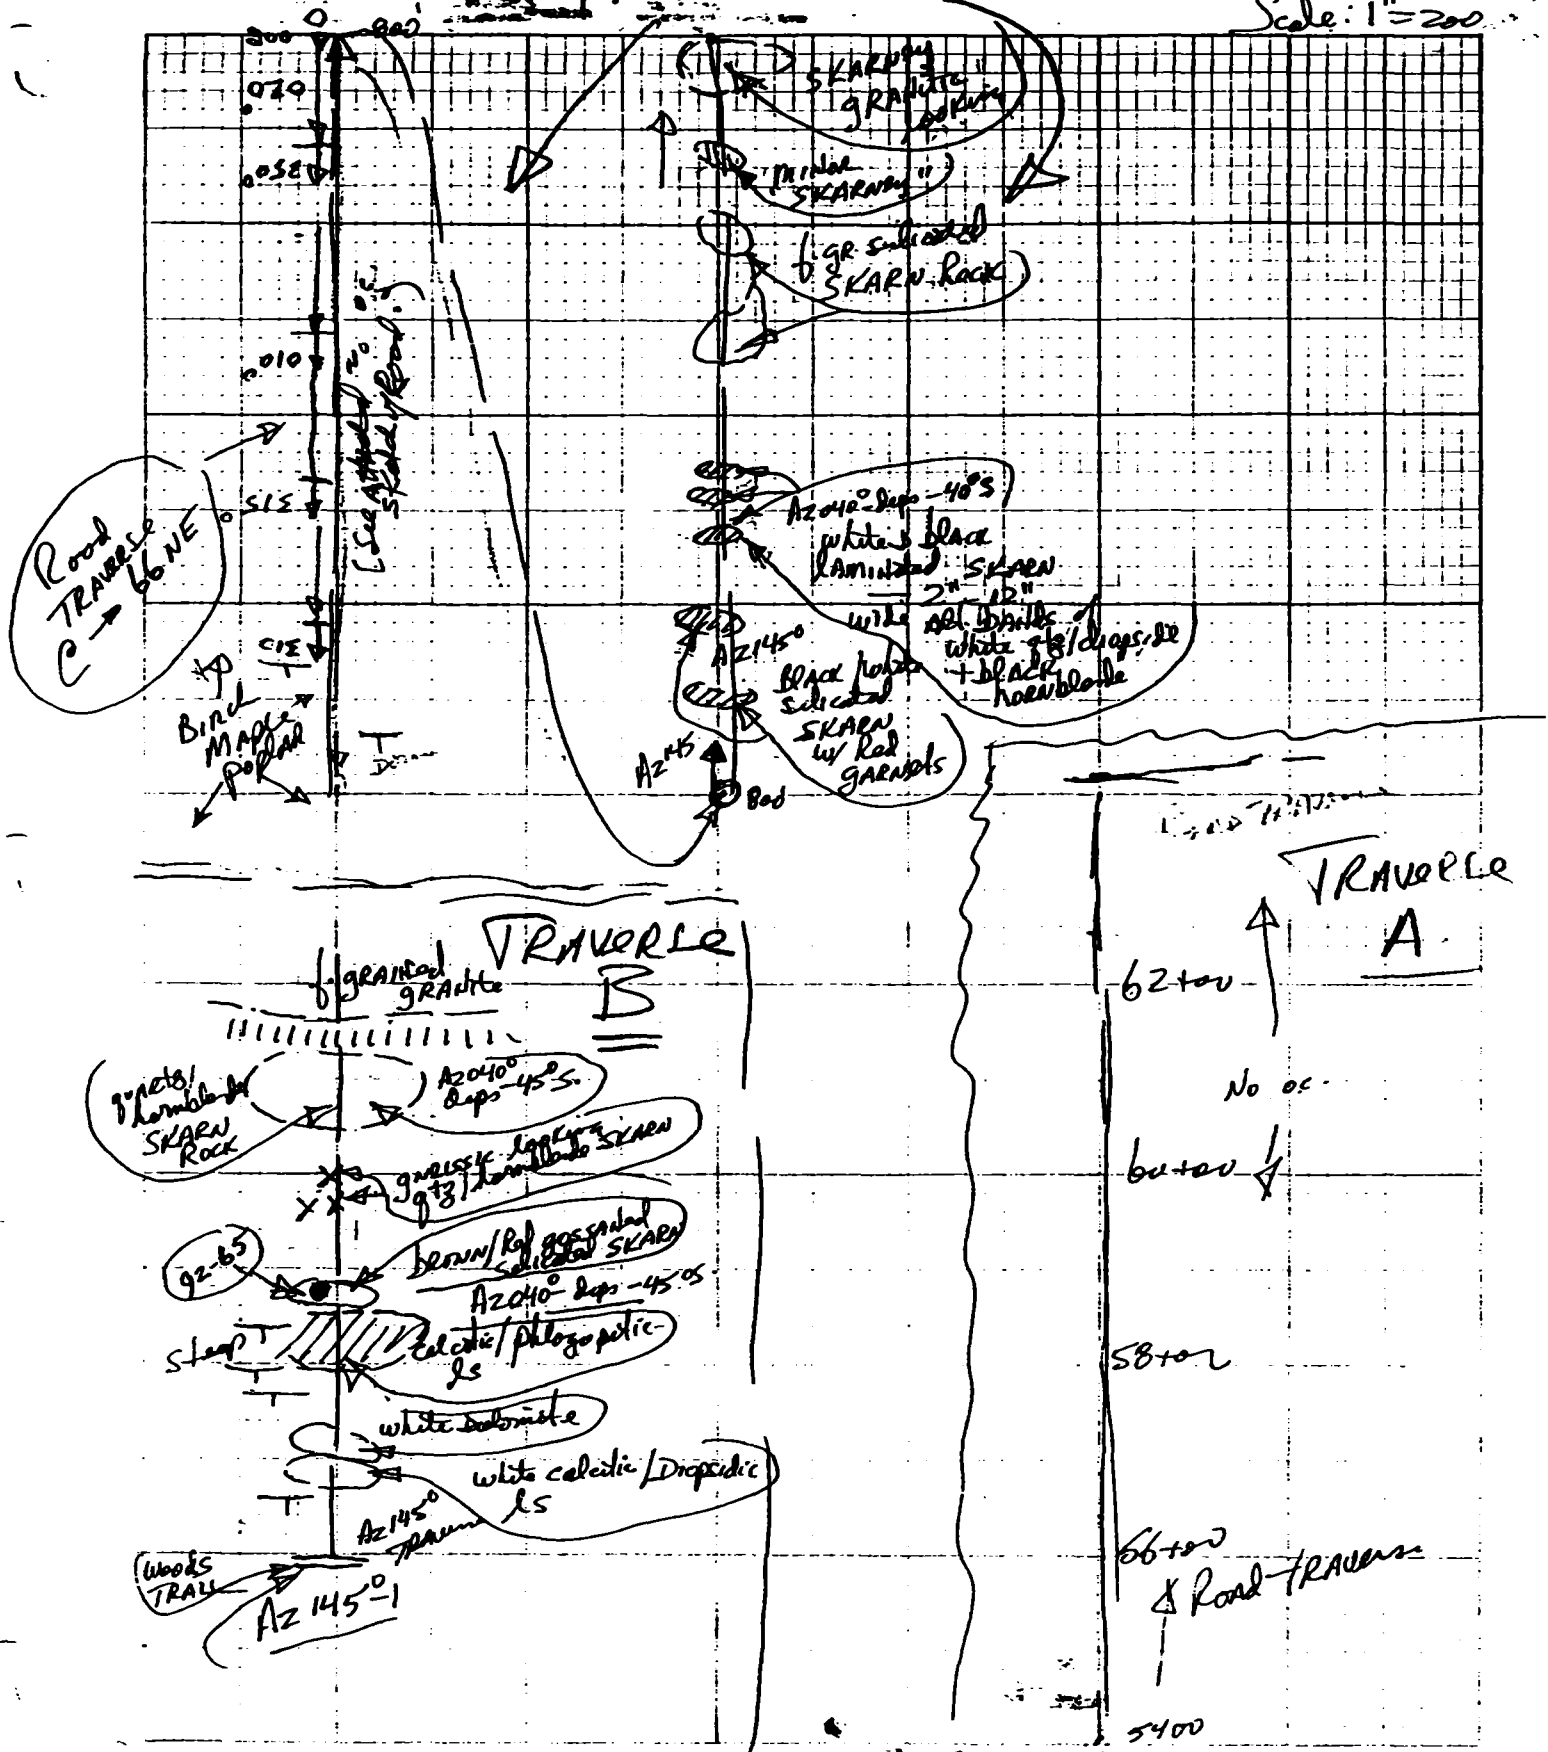 Scale: 1"=200
0
800
800
020°
350°
010°
315°
315
(See Attached
Road
TRAVERSE
C → 66 NE
Birch
Maple
Poplar
SKARNey
gRANitic
looking"
minor
SKARNey"
f. gR silicated
SKARN Rock
Az 040° dips -40°S
white & black
LAMINated SKARN
2" - 12"
wide
white qtz/diopside
+ black
hornblende
Az 145°
Black/white
silicated
SKARN
w/ Red
GARNets
Az 145
800
TRAVERSE
A
62+00
No oc.
60+00
58+00
56+00
Road TRAVERSE
5400
TRAVERSE
B
f. gRAINed
gRANite
quartz/
hornblende
SKARN
ROCK
Az 040°
dips -45°S.
gneissic looking
qtz/hornblende SKARN
92-65
brown/Red gossaned
silicated SKARN
Az 040° dips -45°S
Steep
calcitic/phlogopitic
ls
white dolomite
white calcitic/Diopsidic
ls
Az 145°
TRAVERSE
Woods
TRAIL
Az 145°-1